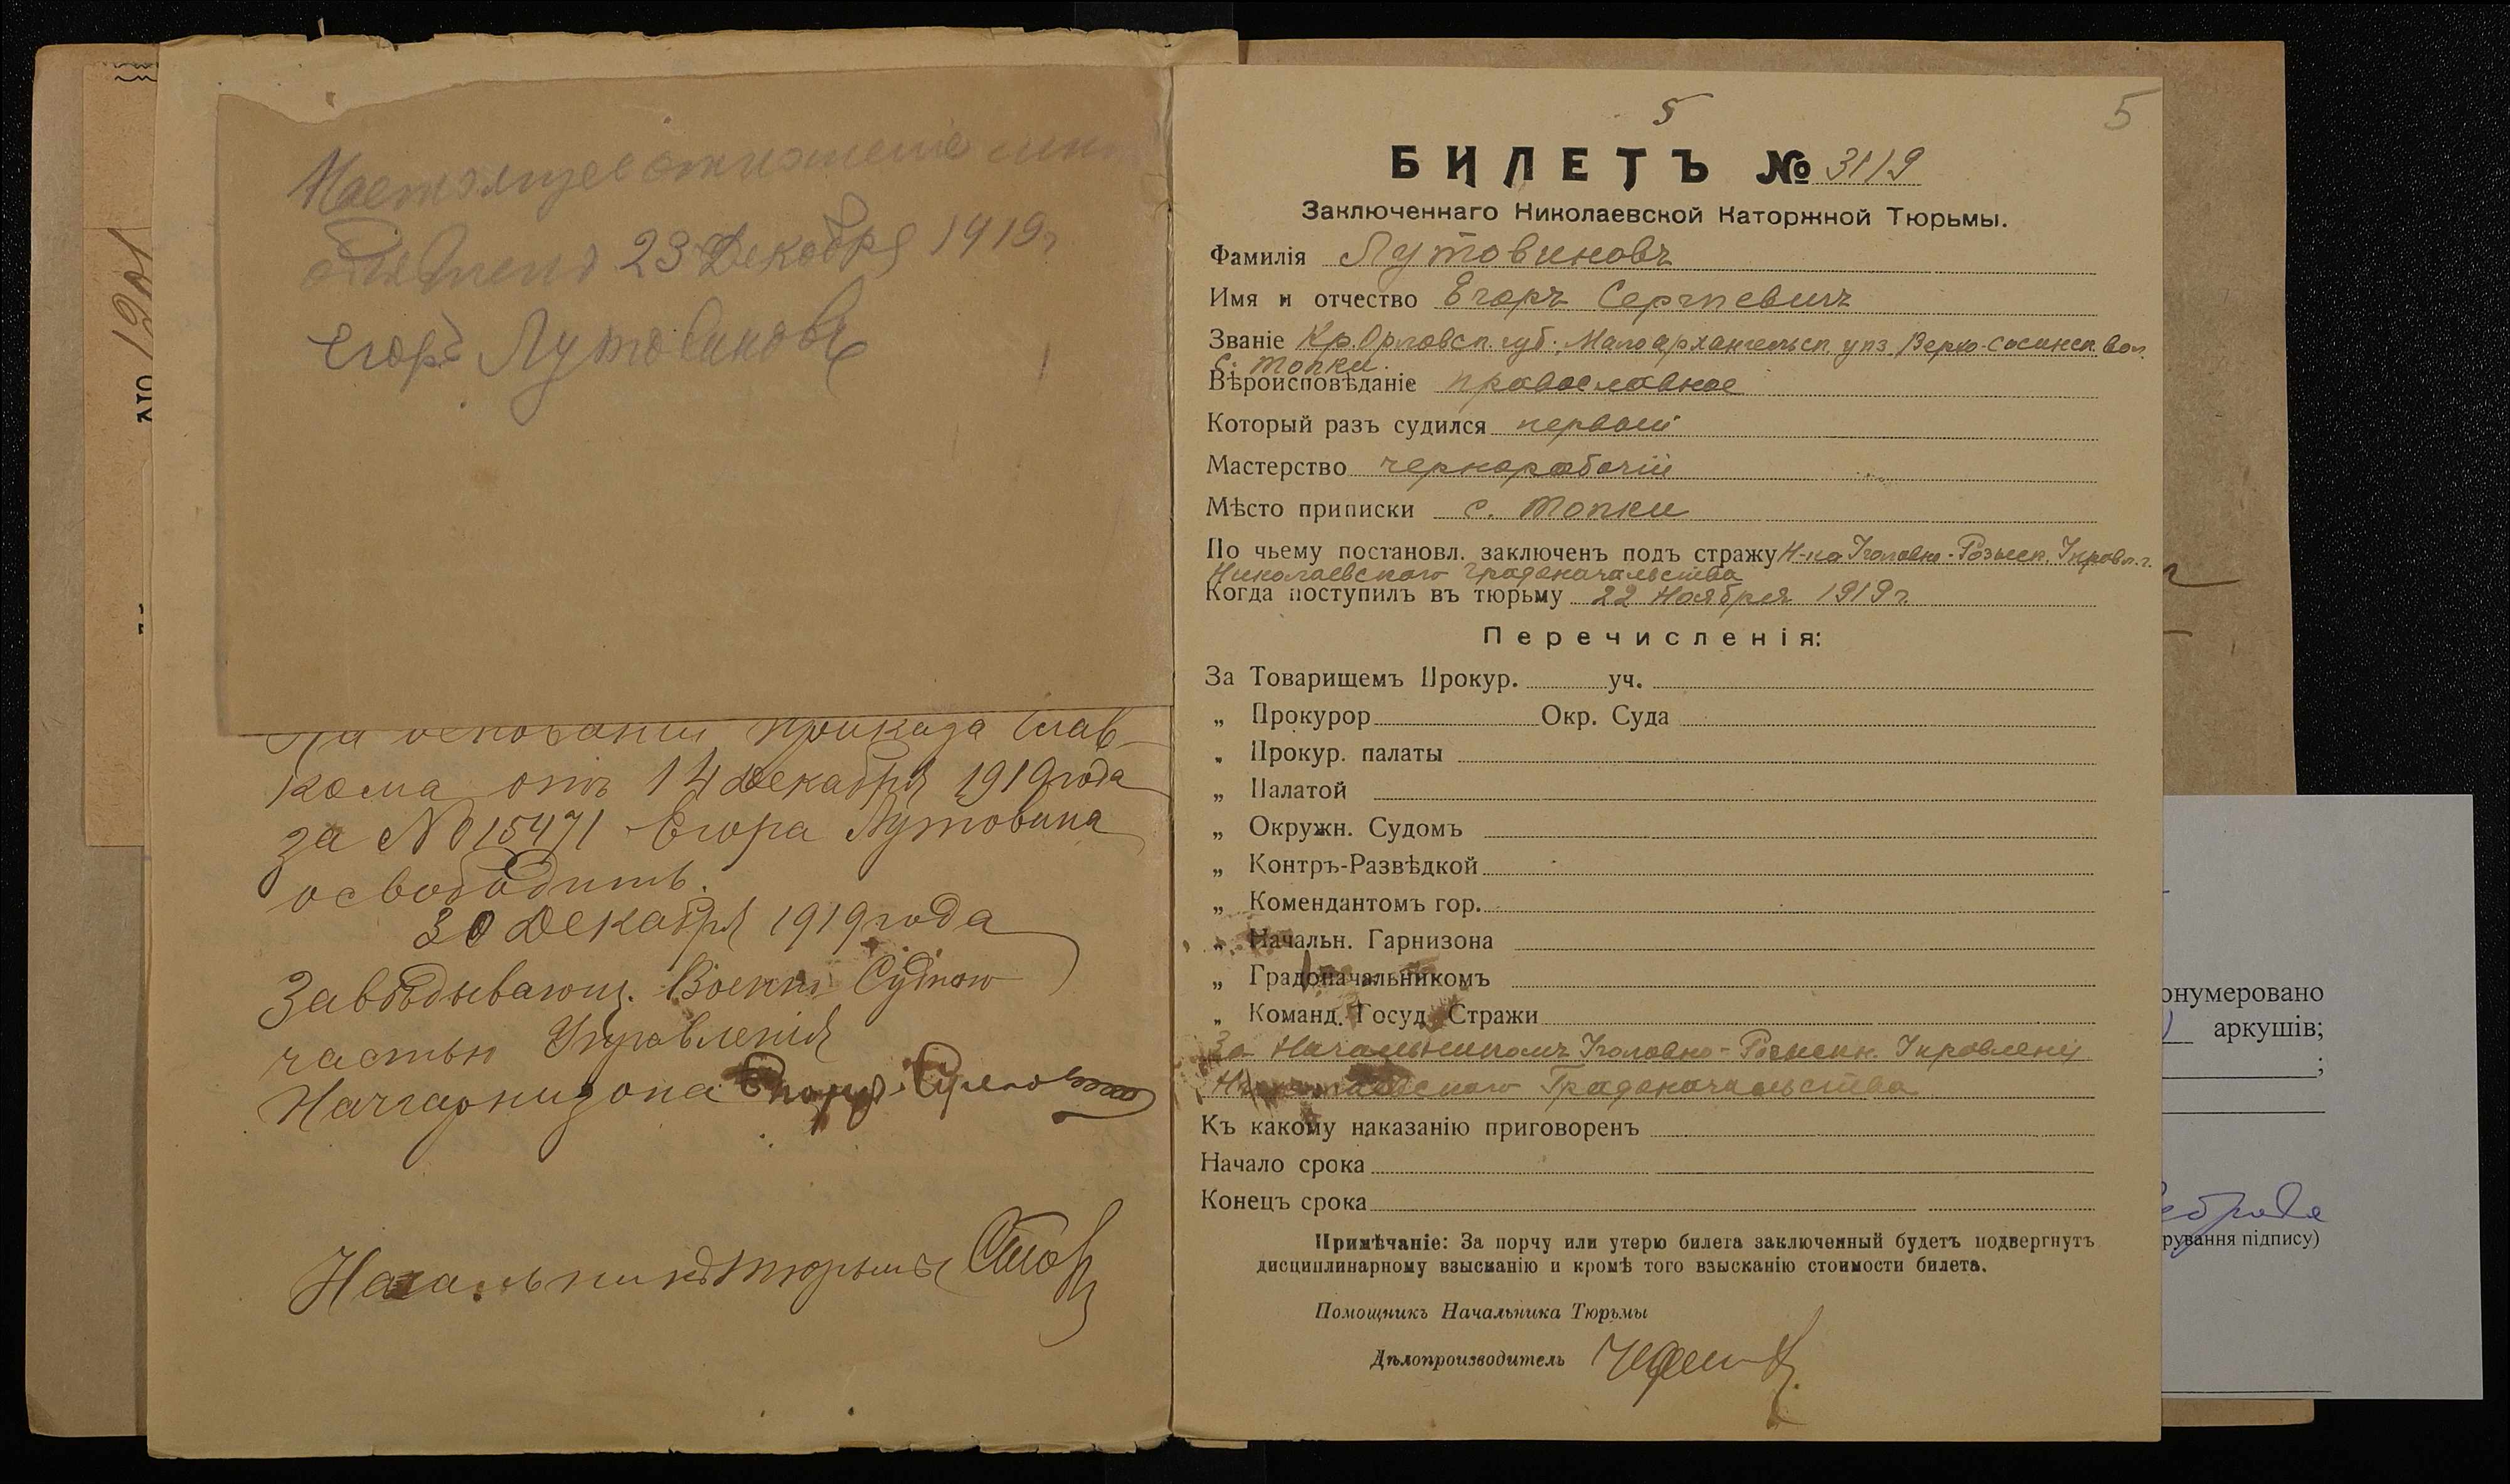 Настоящее отношение мнѣ
объявлено 23 Декабря 1919 г
Егоръ Лутовиновъ
На основании приказа Глав-
кома отъ 14 декабря 1919 года
за № 15471 Егора Лутовина
освободить.
30 Декабря 1919 года
Завѣдывающ. Военно Судною
частью Управленія
Начгарнизона
Начальникъ тюрьмы
5
5
БИЛЕТЪ № 3119
Заключеннаго Николаевской Каторжной Тюрьмы.
Фамилія Лутовиновъ
Имя и отчество Егоръ Сергѣевичъ
Званіе Кр. Орловск. губ. Малоархангельск. уѣз. Верхо-Сосенск. вол.
с. Топки.
Вѣроисповѣданіе православное
Который разъ судился первый
Мастерство чернорабочій
Мѣсто приписки с. Топки
По чьему постановл. заключенъ подъ стражу Н-ка Уголовно-Розыскн. Управл. г.
Николаевскаго Градоначальства
Когда поступилъ въ тюрьму 22 Ноября 1919 г.
Перечисленія:
За Товарищемъ Прокур. уч.
„ Прокурор Окр. Суда
„ Прокур. палаты
„ Палатой
„ Окружн. Судомъ
„ Контръ-Развѣдкой
„ Комендантомъ гор.
„ Начальн. Гарнизона
„ Градоначальникомъ
„ Команд. Госуд. Стражи
За Начальникомъ Уголовно-Розыскн. Управлені
Николаевскаго Градоначальства
Къ какому наказанію приговоренъ
Начало срока
Конецъ срока
Примѣчаніе: За порчу или утерю билета заключенный будетъ подвергнутъ
дисциплинарному взысканію и кромѣ того взысканію стоимости билета.
Помощникъ Начальника Тюрьмы
Дѣлопроизводитель
онумеровано
аркушів;
;
рування підпису)